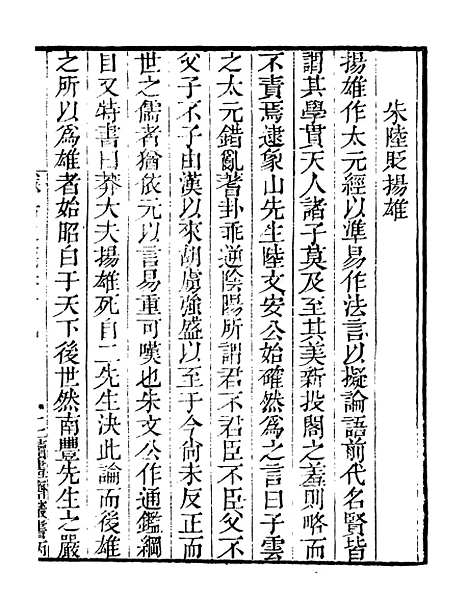 朱陸貶揚雄
揚雄作太元經以準易作法言以擬論語前代名賢皆
謂其學貫天人諸子莫及至其美新投閣之羞則略而
不責焉逮象山先生陸文安公始確然爲之言曰子雲
之太元錯亂蓍卦乖逆陰陽所謂君不君臣不臣父不
父子不子由漢以來胡虜強盛以至于今尙未反正而
世之儒者猶依元以言易重可嘆也朱文公作通鑑綱
目又特書曰莽大夫揚雄死自二先生決此論而後雄
之所以爲雄者始昭白于天下後世然南豐先生之嚴